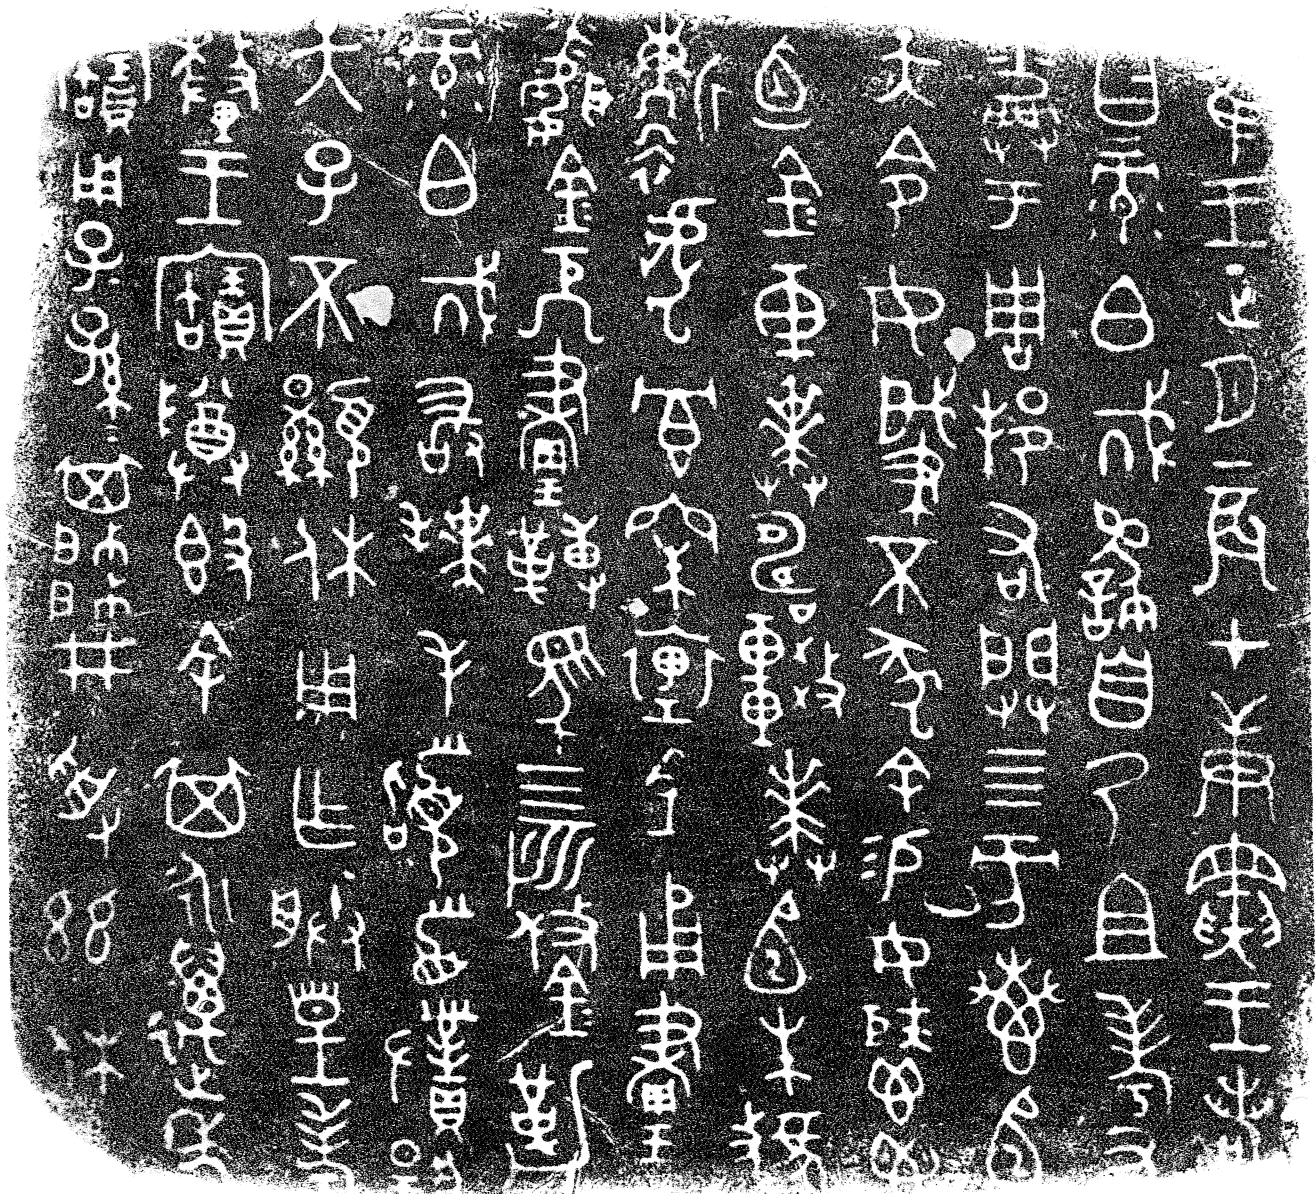 隹王正月辰才庚寅王若
曰彔白𢦚繇自乃且考又
爵于周邦右闢四方惠𢎒
天令女肈不墜余易女𩰬鬯
卣金車𠦪較𠦪朱虢
虎冟裏金甬畫
金厄畫馬四匹鋚勒彔
白𢦚敢拜手𩒨首對揚天
子不顯休用乍朕皇考釐
王寶𣪘余其永萬年寶
用子子孫孫其帥井受茲休